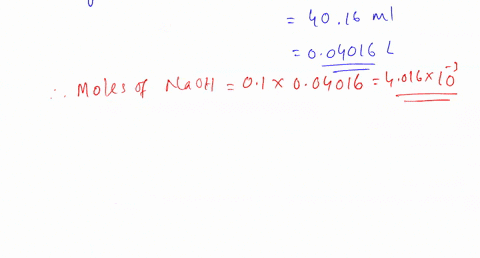 = 40.16 ml
= 0.04016 L
∴ Moles of NaOH = 0.1 × 0.04016 = 4.016 × 10⁻³